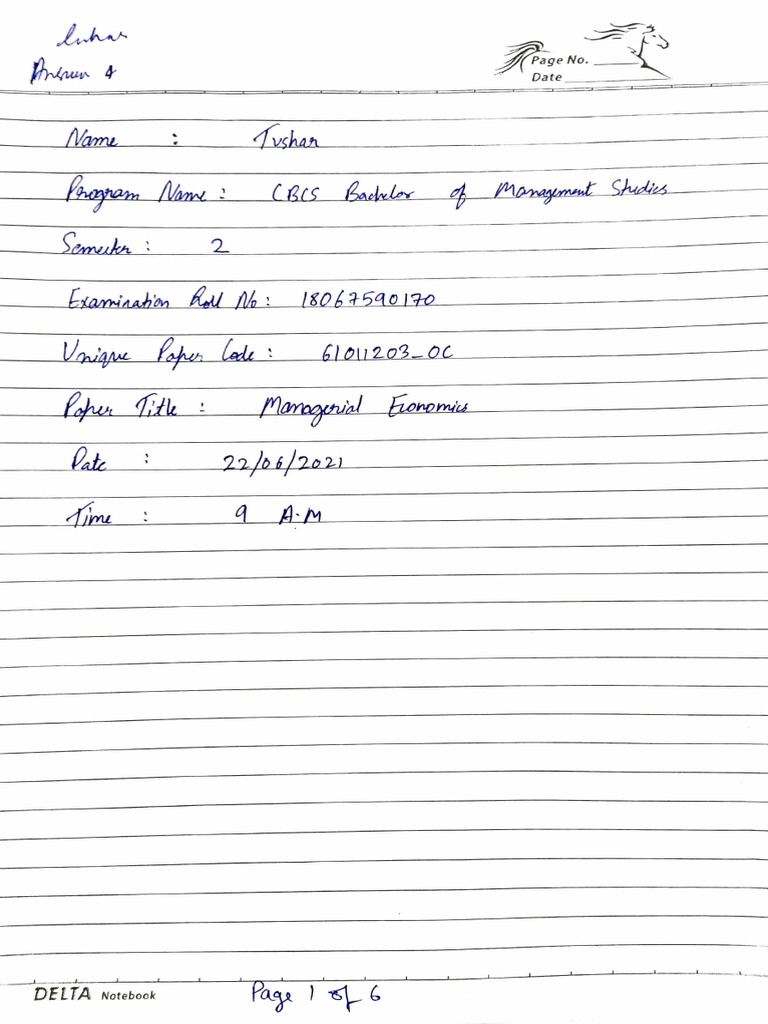 Tushar
Answer 4
Page No.
Date
Name : Tushar
Program Name : CBCS Bachelor of Management Studies
Semester : 2
Examination Roll No : 18067590170
Unique Paper Code : 61011203_OC
Paper Title : Managerial Economics
Date : 22/06/2021
Time : 9 A.M
DELTA Notebook
Page 1 of 6